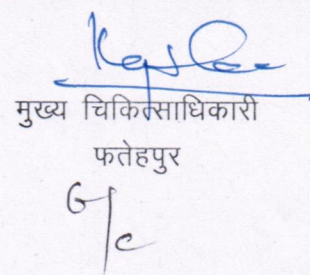 मुख्य चिकित्साधिकारी
फतेहपुर
G/c